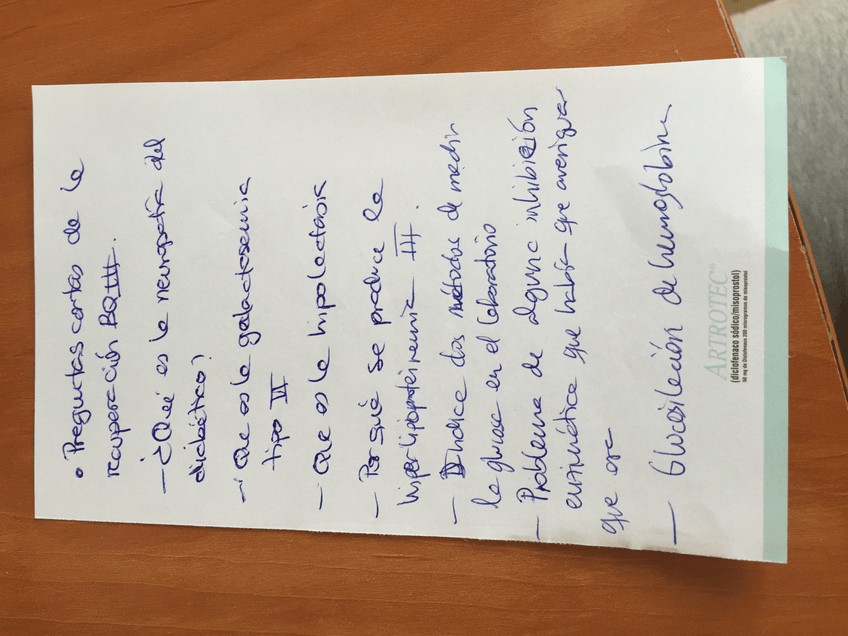 • Preguntas cortas de la
recuperación BQ III.
- ¿Qué es la neuropatía del
diabético?
- Que es la galactosemia
tipo II
- Que es la hipolactasia
- Por qué se produce la
hiperlipoproteinemia III.
- Indice dos métodos de medir
la glucosa en el laboratorio
- Problema de alguna inhibición
enzimática que había que averiguar
que era
- Glucosilación de hemoglobina
ARTROTEC®
(diclofenaco sódico/misoprostol)
50 mg de Diclofenaco 200 microgramos de misoprostol